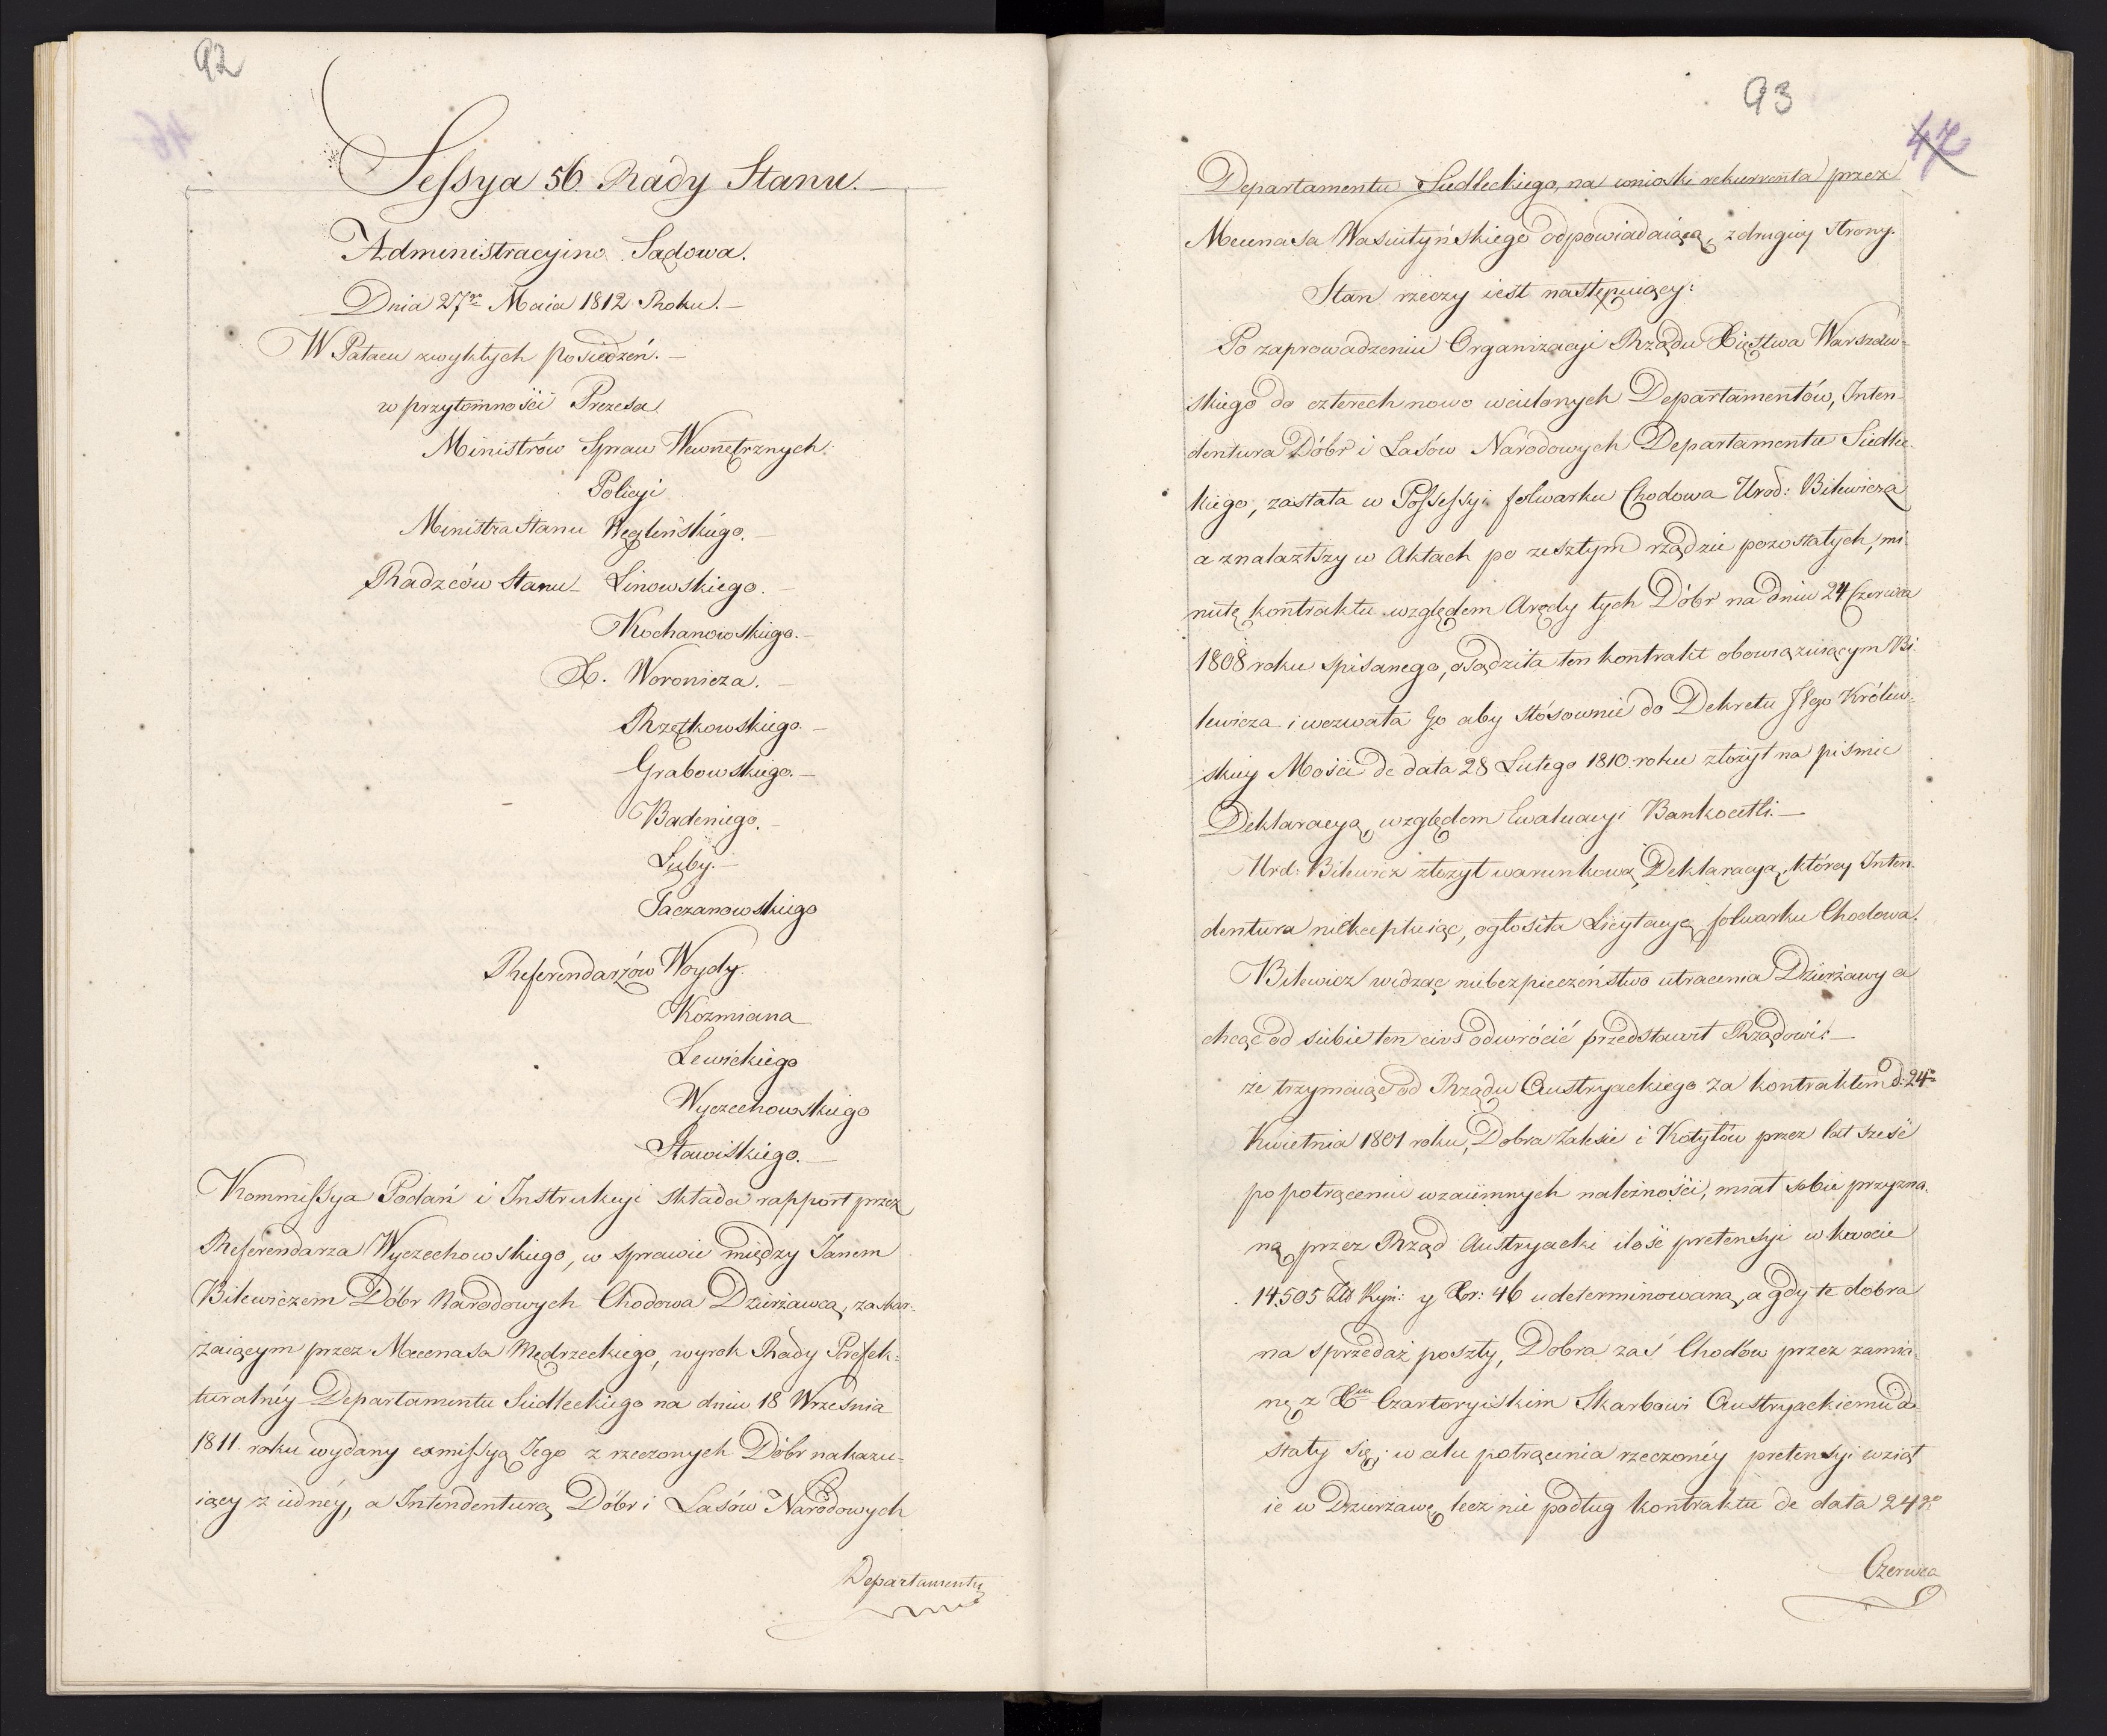 92
Sessya 56 Rady Stanu.
Administracyino Sądowa.
Dnia 27go Maia 1812 Roku.
W Pałacu zwykłych posiedzeń.
w przytomności Prezesa.
Ministrów Spraw Wewnętrznych.
Policyi
Ministra Stanu Węgleńskiego.
Radzców Stanu Linowskiego.
Kochanowskiego.
X. Woronicza.
Rzętkowskiego.
Grabowskiego.
Badeniego.
Łuby.
Taczanowskiego
Referendarzów Woydy.
Kozmiana
Lewickiego
Wyczechowskiego
Stawiskiego.
Kommissya Podań i Instrukcyi składa rapport przez
Referendarza Wyczechowskiego, w sprawie między Janem
Bilewiczem Dóbr Narodowych Chodowa Dzierżawcą, zaskar-
żaiącym przez Mecenasa Mędrzeckiego, wyrok Rady Prefek-
turalnéy Departamentu Siedleckiego na dniu 18 Września
1811. roku wydany exmissyą Jego z rzeczonych Dóbr nakazu-
iący z iednéy, a Intendenturą Dóbr i Lasów Narodowych
Departamentu
93
47
Departamentu Siedleckiego, na wnioski rekurrenta przez
Mecenasa Wasiutyńskiego odpowiadaiącą, z drugiey strony.
Stan rzeczy iest następuiący:
Po zaprowadzeniu Organizacyi Rządu Xięstwa Warszaw-
skiego do czterech nowo wcielonych Departamentów, Inten-
dentura Dóbr i Lasów Narodowych Departamentu Siedlec-
kiego, zastała w Possessyi folwarku Chodowa Urod: Bilewicza
a znalazłszy w Aktach po zeszłym rządzie pozostałych, mi-
nutę kontraktu względem Arędy tych Dóbr na dniu 24 Czerwca
1808 roku spisanego, osądziła ten kontrakt obowiązuiącym Bi-
lewicza i wezwała Go aby stósownie do Dekretu Jego Królew-
skiey Mości de data 28 Lutego 1810. roku złożył na piśmie
Deklaracyą, względem Ewaluacyi Bankocetli.
Urd: Bilewicz złożył warunkową Deklaracyą, którey Inten-
dentura nieakceptuiąc, ogłosiła Licytacyę folwarku Chodowa.
Bilewicz widząc niebezpieczeństwo utracenia Dzierżawy a
chcąc od siebie ten cios odwrócić przedstawił Rządowi:
że trzymaiąc od Rządu Austryackiego za kontraktem d: 24o
Kwietnia 1801 roku, Dobra Zalesie i Kotyłów przez lat sześć
po potrąceniu wzaiemnych należności, miał sobie przyzna-
ną przez Rząd Austryacki ilość pretensyi w kwocie
14.505 Złł Ryn: y Xr: 46 udeterminowaną, a gdy te dobra
na sprzedaż poszły, Dobra zaś Chodów przez zamia-
nę z Xm Czartoryiskim Skarbowi Austryackiemu do-
stały się; w celu potrącenia rzeczonéy pretensyi wziął
ie w Dzierżawę lecz nie podług kontraktu de data 24go
Czerwca